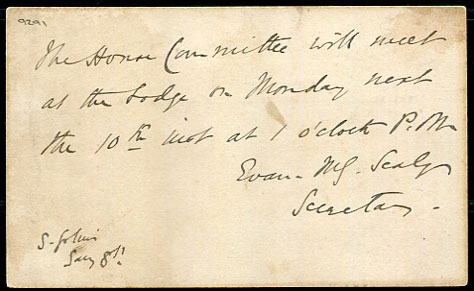 9291
The House Committee will meet
at the Lodge on Monday next
the 10th inst at 1 o'clock P.M.
Evan
Secretary.
S. John's
8th